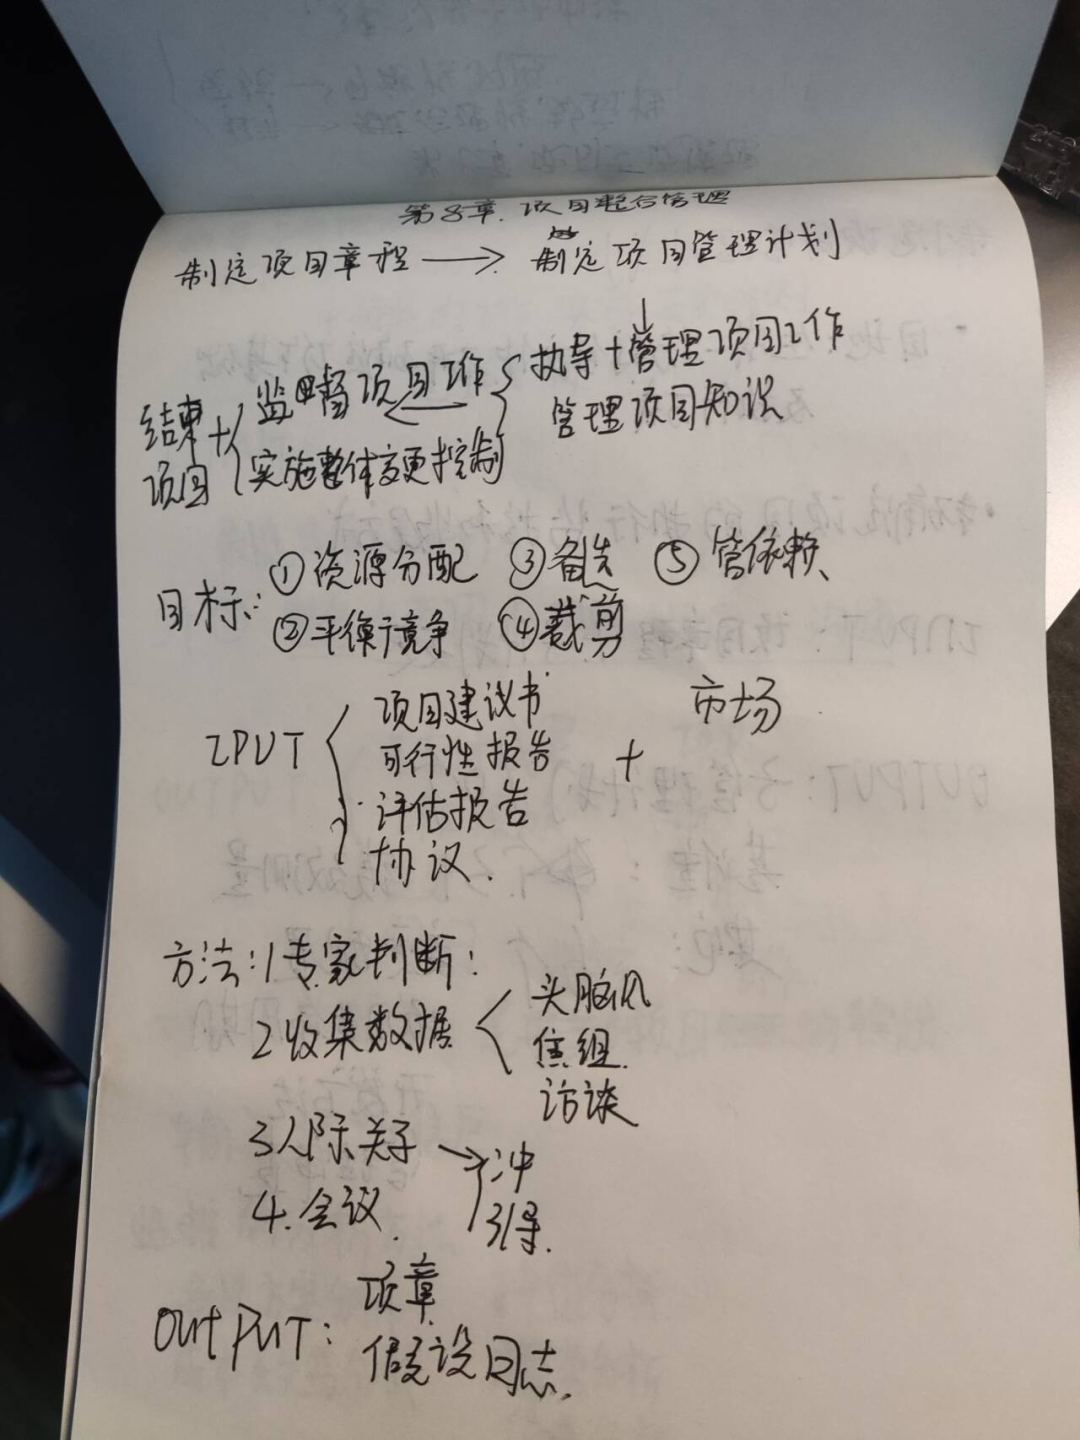 第8章.项目整合管理
制定项目章程 → 制定项目管理计划
执导+管理项目工作
管理项目知识
监督项目工作
实施整体变更控制
结束
项目
目标: ①资源分配 ③备选 ⑤管依赖
②平衡竞争 ④裁剪
IPUT 项目建议书 市场
可行性报告 +
评估报告
协议.
方法:1专家判断:
2收集数据 头脑风
焦组
访谈
3人际关子 → 冲
4.会议 引导.
项章
OUTPUT: 假设日志.